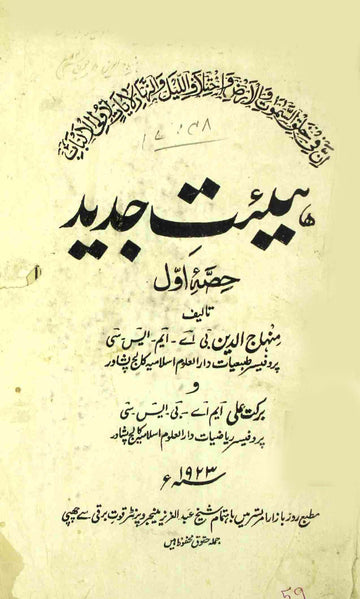 اِنَّ فِیْ خَلْقِ السَّمٰوٰتِ وَالْاَرْضِ وَاخْتِلَافِ الَّیْلِ وَالنَّهَارِ لَاٰیَاتٍ لِّاُولِی الْاَلْبَابِ
ہیئت جدید
حصۂ اوّل
تالیف
منہاج الدین بی اے - ایم - ایس - سی
پروفیسر طبعیات دارالعلوم اسلامیہ کالج پشاور
و
برکت علی ایم اے - بی - ایس - سی
پروفیسر ریاضیات دارالعلوم اسلامیہ کالج پشاور
۱۹۲۳ء
مطبع روز بازار امرتسر میں باہتمام شیخ عبدالعزیز مینیجر و پرنٹر قوت برقی سے چھپی
جملہ حقوق محفوظ ہیں
59